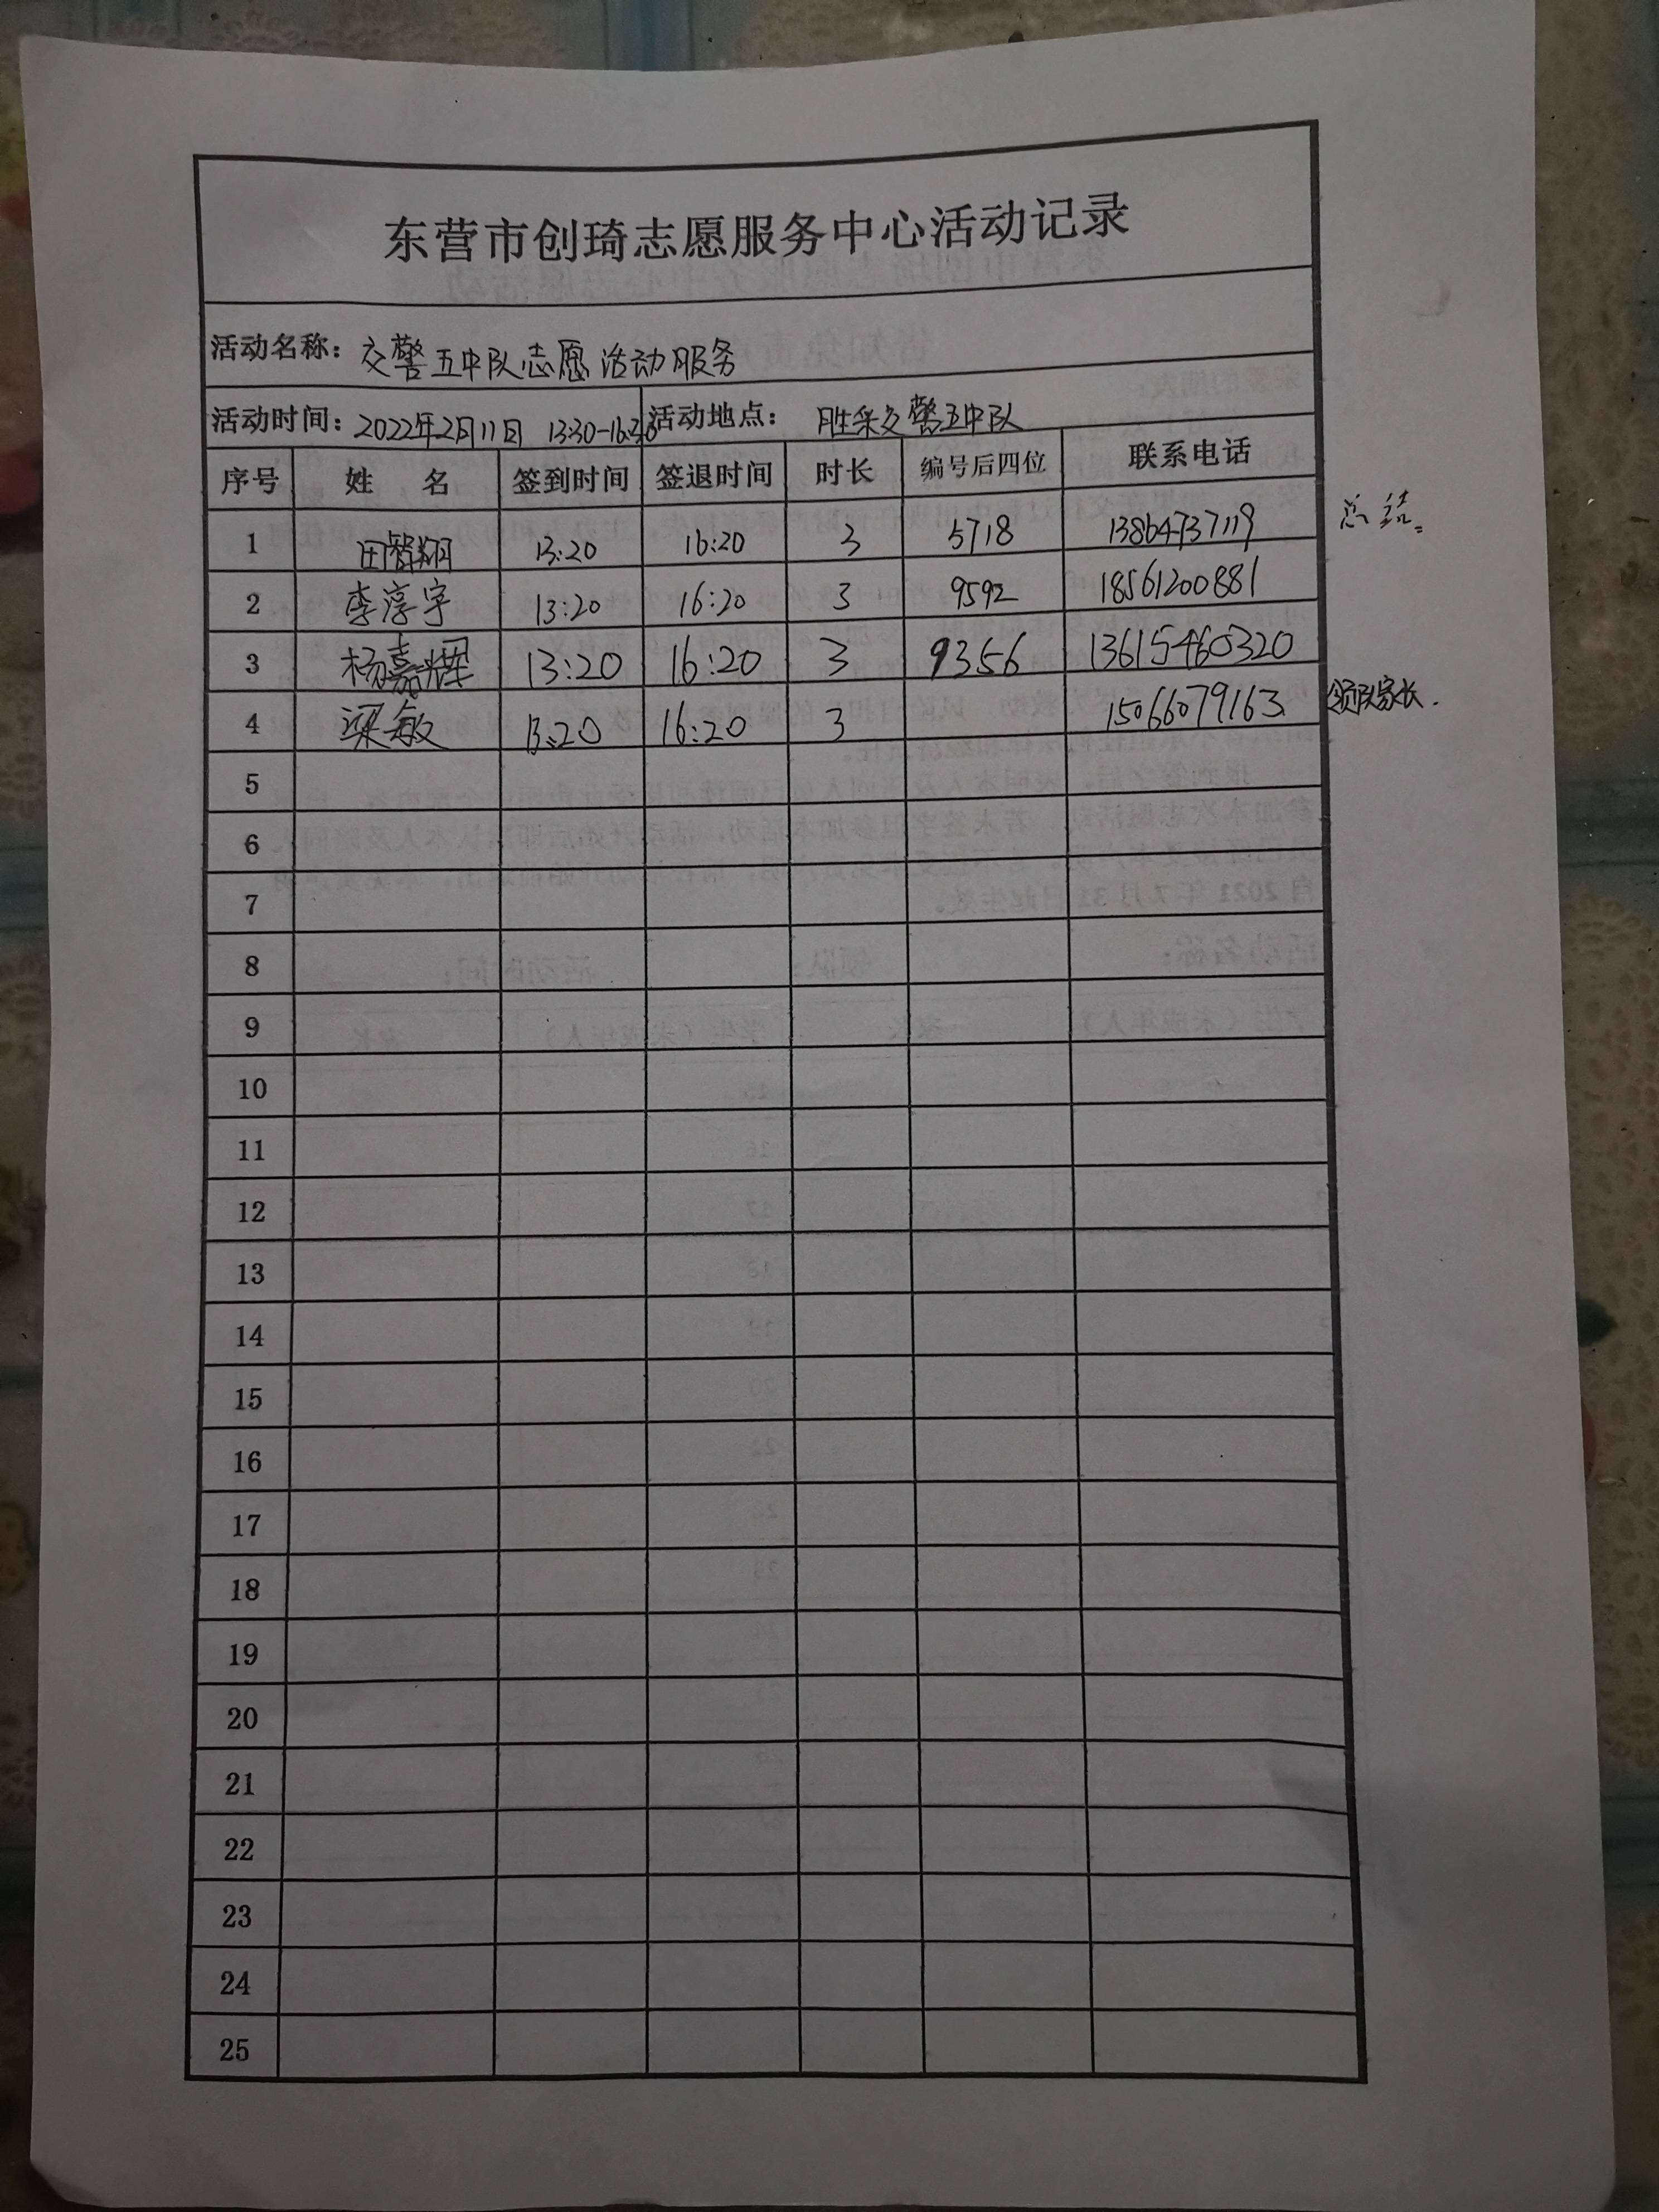 东营市创琦志愿服务中心活动记录
活动名称：交警五中队志愿活动服务
活动时间：2022年2月11日 13:30-16:30 活动地点：胜采交警五中队
序号 姓 名 签到时间 签退时间 时长 编号后四位 联系电话
1 田智翔 13:20 16:20 3 5718 13864737119 总结
2 李淳宇 13:20 16:20 3 9592 18561200881
3 杨嘉辉 13:20 16:20 3 9356 13615460320
4 梁敏 13:20 16:20 3 15066079163 领队家长.
5
6
7
8
9
10
11
12
13
14
15
16
17
18
19
20
21
22
23
24
25